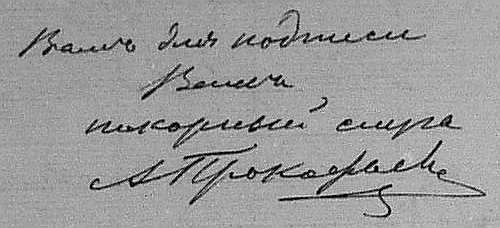 Вамъ для подписи
Вашъ
покорный слуга
А Прокофьевъ